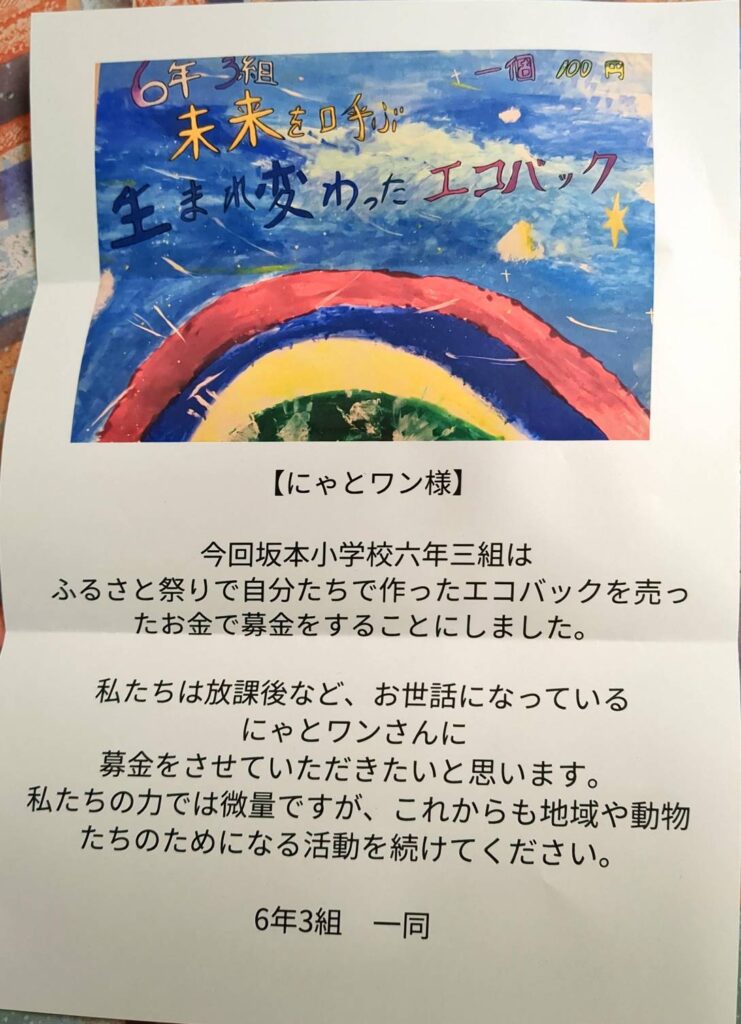 6年 3組
一個 100円
未来を呼ぶ
生まれ変わった エコバック
【にゃとワン様】
今回坂本小学校六年三組は
ふるさと祭りで自分たちで作ったエコバックを売っ
たお金で募金をすることにしました。
私たちは放課後など、お世話になっている
にゃとワンさんに
募金をさせていただきたいと思います。
私たちの力では微量ですが、これからも地域や動物
たちのためになる活動を続けてください。
6年3組　一同